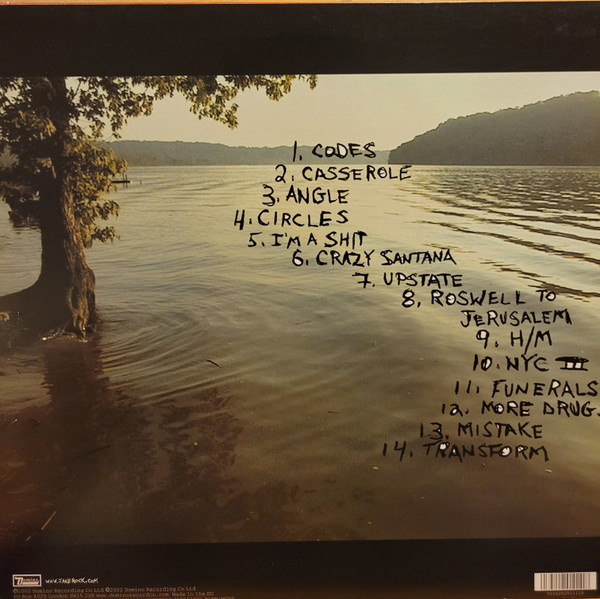 1. CODES
2. CASSEROLE
3. ANGLE
4. CIRCLES
5. I'M A SHIT
6. CRAZY SANTANA
7. UPSTATE
8. ROSWELL TO
JERUSALEM
9. H/M
10. NYC III
11. FUNERALS
12. MORE DRUG.
13. MISTAKE
14. TRANSFORM
Domino
WWW.JAKEROCK.COM
©2002 Domino Recording Co Ltd ℗2002 Domino Recording Co Ltd
PO Box 4029 London SW15 2XR www.dominorecordco.com Made in the EU